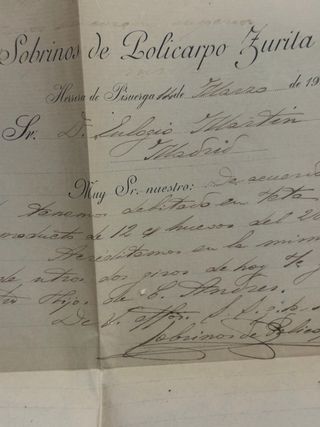 Sobrinos de Policarpo Zurita
Herrera de Pisuerga 14 de Marzo de 19
Sr. D. Eulogio Martin
Madrid
Muy Sr. nuestro: De acuerdo
tenemos debitado en
producto de 12 huesos del 20
Acreditamos en la misma
de ntros. dos giros de hoy
hijo de C. Andres.
De V. affmos. S. S. q.
Sobrinos de Policar